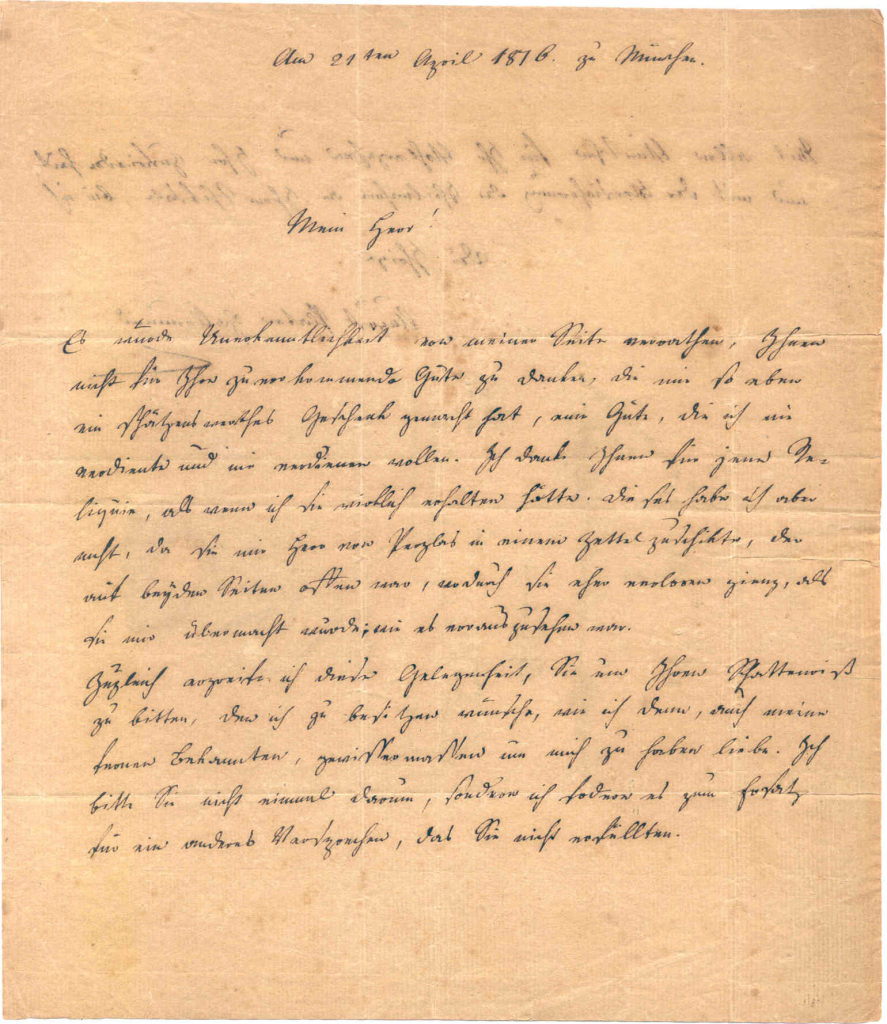 Am 21ten April 1816. zu München.
Mein Herr!
Es würde Unerkenntlichkeit von meiner Seite verrathen, Ihnen
nicht für Ihre zuvorkommende Güte zu danken, die mir so eben
ein schätzenswerthes Geschenk gemacht hat, eine Güte, die ich nie
verdiente und nie verdienen wollen. Ich danke Ihnen für jene Re-
liquie, als wenn ich sie wirklich erhalten hätte. Dieses habe ich aber
nicht, da sie mir Herr von Perglas in einem Zettel zuschikte, der
auf beyden Seiten offen war, wodurch sie eher verloren gieng, als
sie mir übermacht wurde; wie es vorauszusehen war.
Zugleich ergreife ich diese Gelegenheit, Sie um Ihren Schattenriß
zu bitten, den ich zu besitzen wünsche, wie ich denn, auch meine
fernen Bekannten, gewissermassen um mich zu haben liebe. Ich
bitte Sie nicht einmal darum, sondern ich fodere es zum Ersatz
für ein anderes Versprechen, das Sie nicht erfüllten.